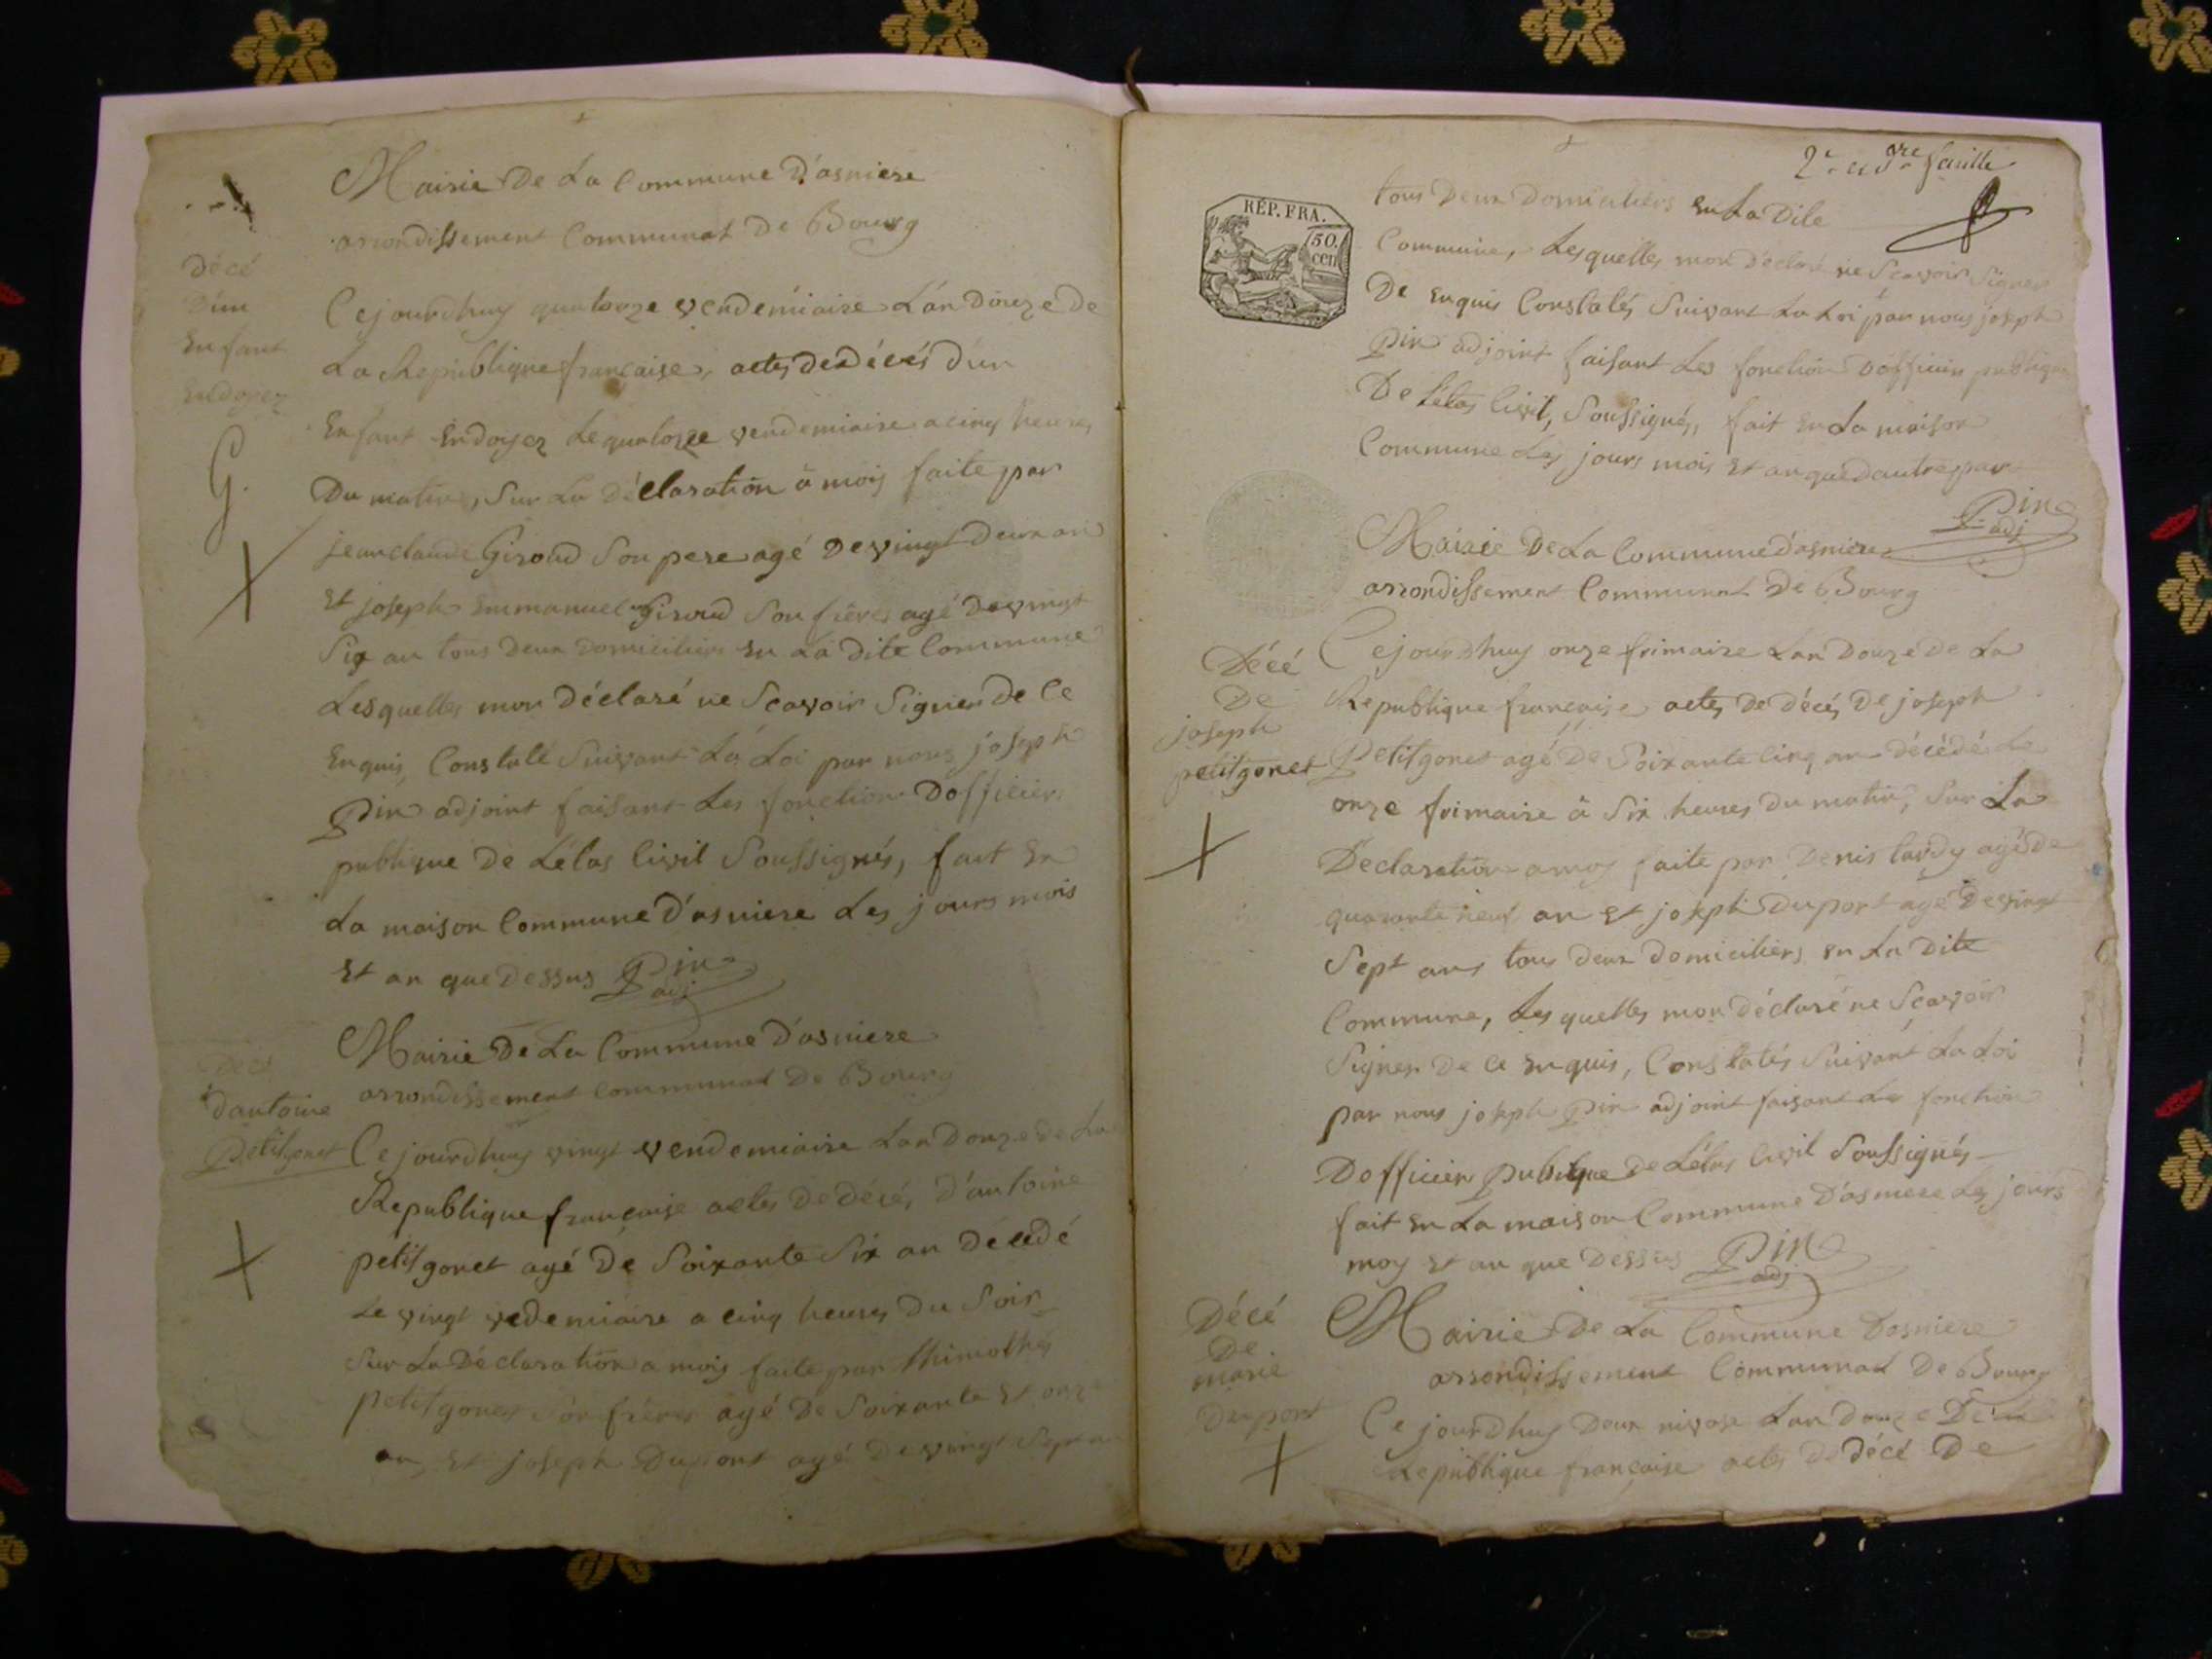 Mairie De La Commune D'asniere
arrondissement Communal De Bourg
Décé
D'un
Enfant
Endoyez
G.
Cejourdhuy quatorze vendémiaire L'an Douze de
La Republique française, actes de décés d'un
Enfant Endoyez Le quatorze vendemiaire a cinq heures
Du matin, Sur La Déclaration à moij faite par
jean claude Giroud Son pere agé De vingt Deux an
Et joseph Emmanuel Giroud Son frére agé De vingt
Six an tous Deux Domiciliers En La dite Commune
Lesquelles mon Déclaré ne Scavoir Signer De Ce
Enquis, Constalé Suivant La Loi par nous joseph
Pin adjoint faisant Les fonction Dofficier
publique De Létas Civil Soussignés, fait En
La maison Commune D'asniere Les jours mois
Et an que Dessus Pin
adj
Mairie De La Commune D'asniere
arrondissement Communal De Bourg
Décé
D'antoine
Petitgonet
Cejourdhuy vingt vendemiaire Lan Douze De La
Republique française actes De décés, D'antoine
petitgonet agé De Soixante Six an Décédé
Le vingt vedemiaire a cinq heures Du Soir
Sur La Déclaration a moij faite par thimothé
petitgonet Son frére agé De Soixante Et onze
an, Et joseph Dupont agé De vingt Sept an
2e et dre feuille
RÉP. FRA.
50.
cen
tous Deux Domiciliés En La Dite
Commune, Lesquelles mon Déclaré ne Scavoir Signer
De Enquis Constatés Suivant La Loi par nous joseph
Pin adjoint faisant Les fonction Dofficier publique
De Létas Civil, Soussignés, fait En La maison
Commune Les jours mois Et an que d'autre par
Pin
adj
Mairie De La Commune D'asniere
arrondissement Communal De Bourg
Décé
De
joseph
petitgonet
Cejourdhuy onze frimaire Lan Douze De La
Republique française actes De décés, De joseph
Petitgonet agé De Soixante Cinq an Décédé Le
onze frimaire à Six heures Du matin, Sur La
Déclaration a moy faite par Denis tardy agé de
quarante neuf an Et joseph Duport agé De vingt
Sept ans tous Deux Domiciliers En La Dite
Commune, Les quelles mon Déclaré ne Scavoir
Signer De Ce Enquis, Constatés Suivant La Loi
par nous joseph Pin adjoint faisant Les fonction
Dofficier Publique De Létas Civil Soussignés
fait En La maison Commune D'asniere Les jours
moy Et an que Dessus Pin
adj
Mairie De La Commune Dasniere
arrondissement Communal De Bourg
Décé
De
marie
Duport
Ce jourdhuy Deux nivose Lan Douze De La
Republique française actes De décé De